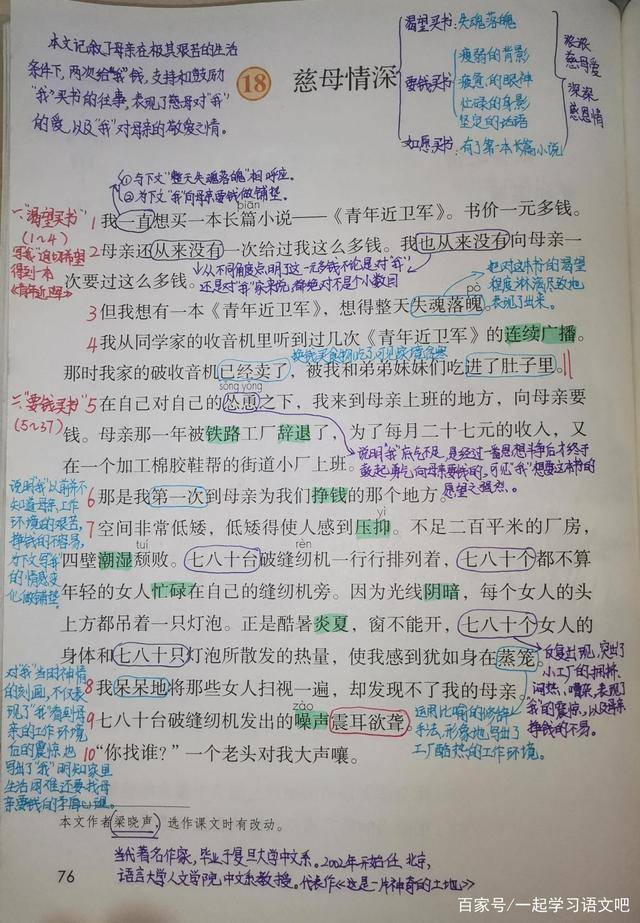 本文记叙了母亲在极其艰苦的生活
条件下,两次给"我"钱,支持和鼓励
"我"买书的往事,表现了慈母对"我"
的爱,以及"我"对母亲的敬爱之情。
18 慈母情深
渴望买书:失魂落魄
要钱买书
疲弱的背影
疲惫的眼神
忙碌的身影
坚定的话语
如愿买书:有了第一本长篇小说
浓浓
慈母爱
深深
感恩情
①与下文"整天失魂落魄"相呼应。
②为下文"我"向母亲要钱做铺垫。
一、"渴望买书"
(1~4)
得到一本
《青年近卫军》
biān
1 我一直想买一本长篇小说——《青年近卫军》。书价一元多钱。
2 母亲还从来没有一次给过我这么多钱。我也从来没有向母亲一
次要过这么多钱。
从不同角度点明了这一元多钱不论是对"我"
还是对"我"家来说,都绝对不是个小数目
把对这本书的渴望
程度淋漓尽致地
表现了出来。
pò
3 但我想有一本《青年近卫军》,想得整天失魂落魄。
4 我从同学家的收音机里听到过几次《青年近卫军》的连续广播。
那时我家的破收音机已经卖了,被我和弟弟妹妹们吃进了肚子里。
二、"要钱买书"
(5~37)
sǒng yǒng
5 在自己对自己的怂恿之下,我来到母亲上班的地方,向母亲要
钱。母亲那一年被铁路工厂辞退了,为了每月二十七元的收入,又
在一个加工棉胶鞋鞋帮的街道小厂上班。
说明"我"底气不足,是经过一番思想斗争后才终于
鼓起勇气向母亲要钱的,可见"我"想要这本书的
愿望之强烈。
说明"我"以前并不
知道母亲工作
环境的艰苦,
挣钱的不容易,
为下文写"我"
的情感变
化做铺垫。
6 那是我第一次到母亲为我们挣钱的那个地方。
yì
7 空间非常低矮,低矮得使人感到压抑。不足二百平米的厂房,
tuí rèn
四壁潮湿颓败。七八十台破缝纫机一行行排列着,七八十个都不算
年轻的女人忙碌在自己的缝纫机旁。因为光线阴暗,每个女人的头
上方都吊着一只灯泡。正是酷暑炎夏,窗不能开,七八十个女人的
身体和七八十只灯泡所散发的热量,使我感到犹如身在蒸笼。
反复出现,突出了
小工厂的拥挤、
闷热、嘈杂,表现了
"我"的震惊,以及母亲
挣钱的不易。
对"我"当时神情
的刻画,不仅表
现了"我"看到母
亲的工作环境
后的震惊,也
写出了"我"明知家里
生活困难还要找母
8 我呆呆地将那些女人扫视一遍,却发现不了我的母亲。
zào
9 七八十台破缝纫机发出的噪声震耳欲聋。
运用比喻的修辞
手法,形象地写出了
工厂酷热的工作环境。
10 "你找谁?"一个老头对我大声嚷。
本文作者梁晓声,选作课文时有改动。
当代著名作家,毕业于复旦大学中文系。2002年开始任北京
语言大学人文学院中文系教授。代表作《这是一片神奇的土地》
76
百家号/一起学习语文吧